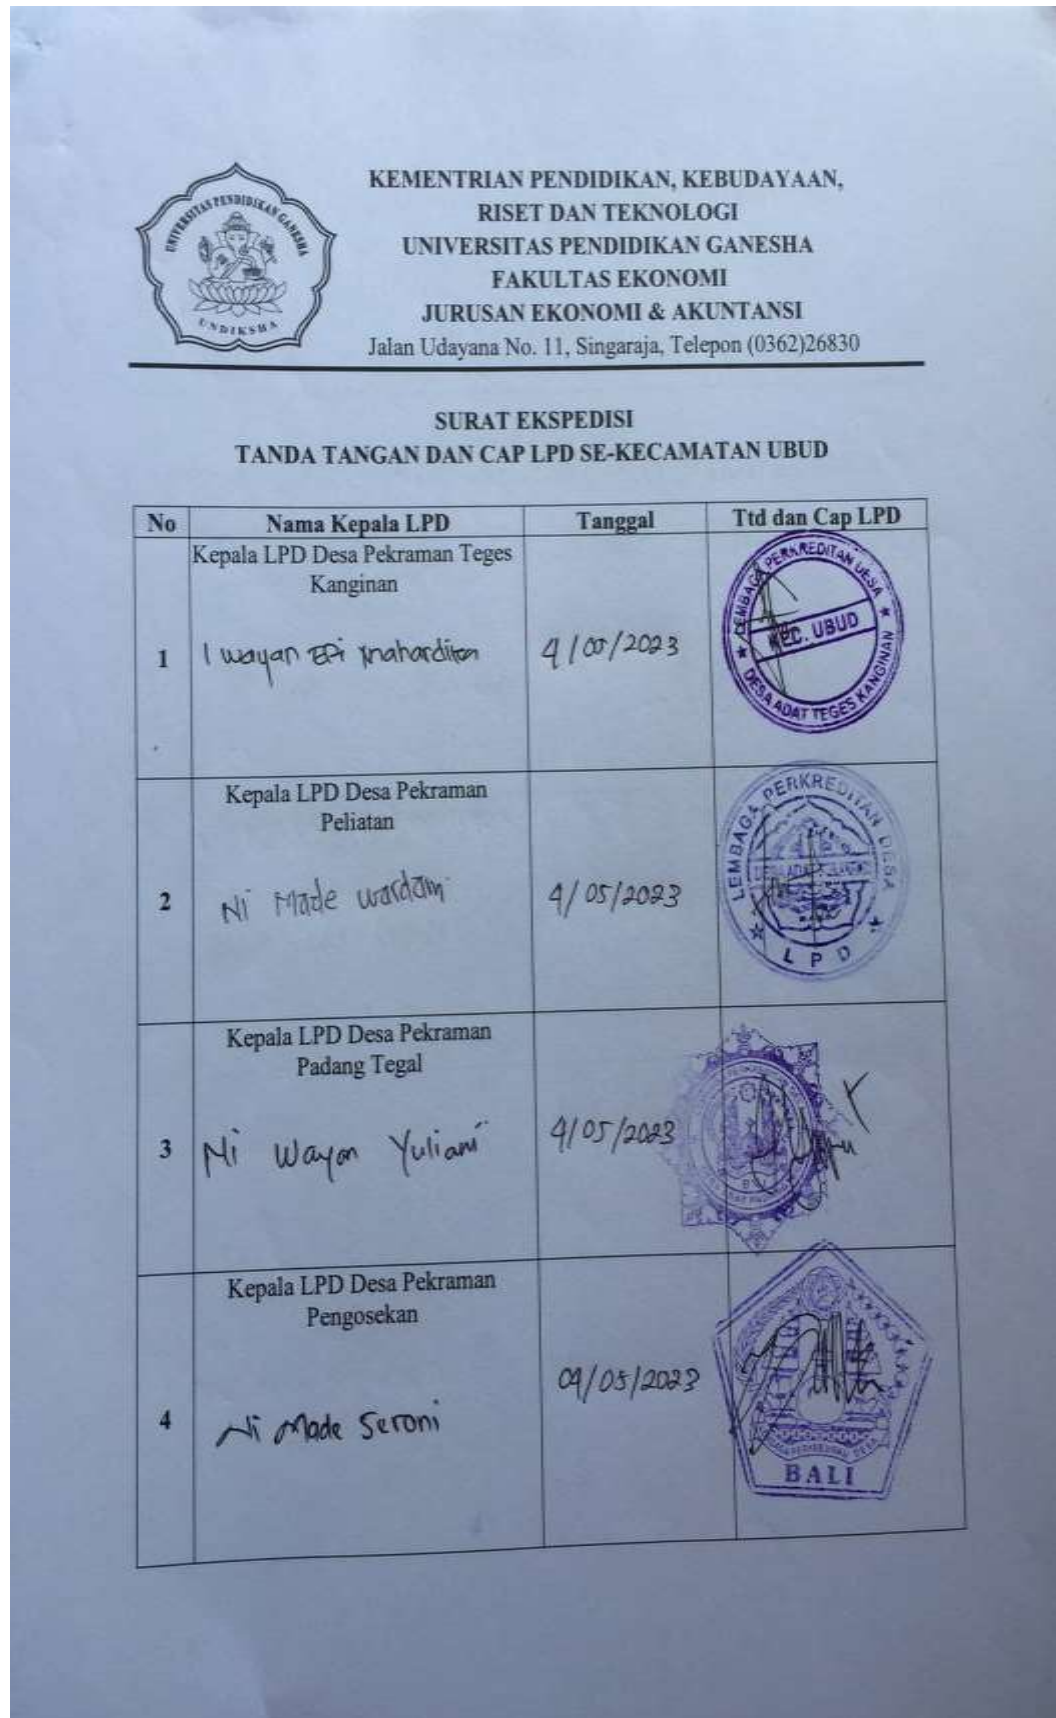 UNIVERSITAS PENDIDIKAN GANESHA
UNDIKSHA
KEMENTRIAN PENDIDIKAN, KEBUDAYAAN,
RISET DAN TEKNOLOGI
UNIVERSITAS PENDIDIKAN GANESHA
FAKULTAS EKONOMI
JURUSAN EKONOMI & AKUNTANSI
Jalan Udayana No. 11, Singaraja, Telepon (0362)26830
SURAT EKSPEDISI
TANDA TANGAN DAN CAP LPD SE-KECAMATAN UBUD
No Nama Kepala LPD Tanggal Ttd dan Cap LPD
Kepala LPD Desa Pekraman Teges
Kanginan
1 I wayan 4/05/2023
LEMBAGA PERKREDITAN DESA
KEC. UBUD
DESA ADAT TEGES KANGINAN
Kepala LPD Desa Pekraman
Peliatan
2 Ni Made Wardani 4/05/2023
LEMBAGA PERKREDITAN DESA
LPD
Kepala LPD Desa Pekraman
Padang Tegal
3 Ni Wayan Yuliani 4/05/2023
Kepala LPD Desa Pekraman
Pengosekan
4 Ni Made Seroni 04/05/2023
BALI